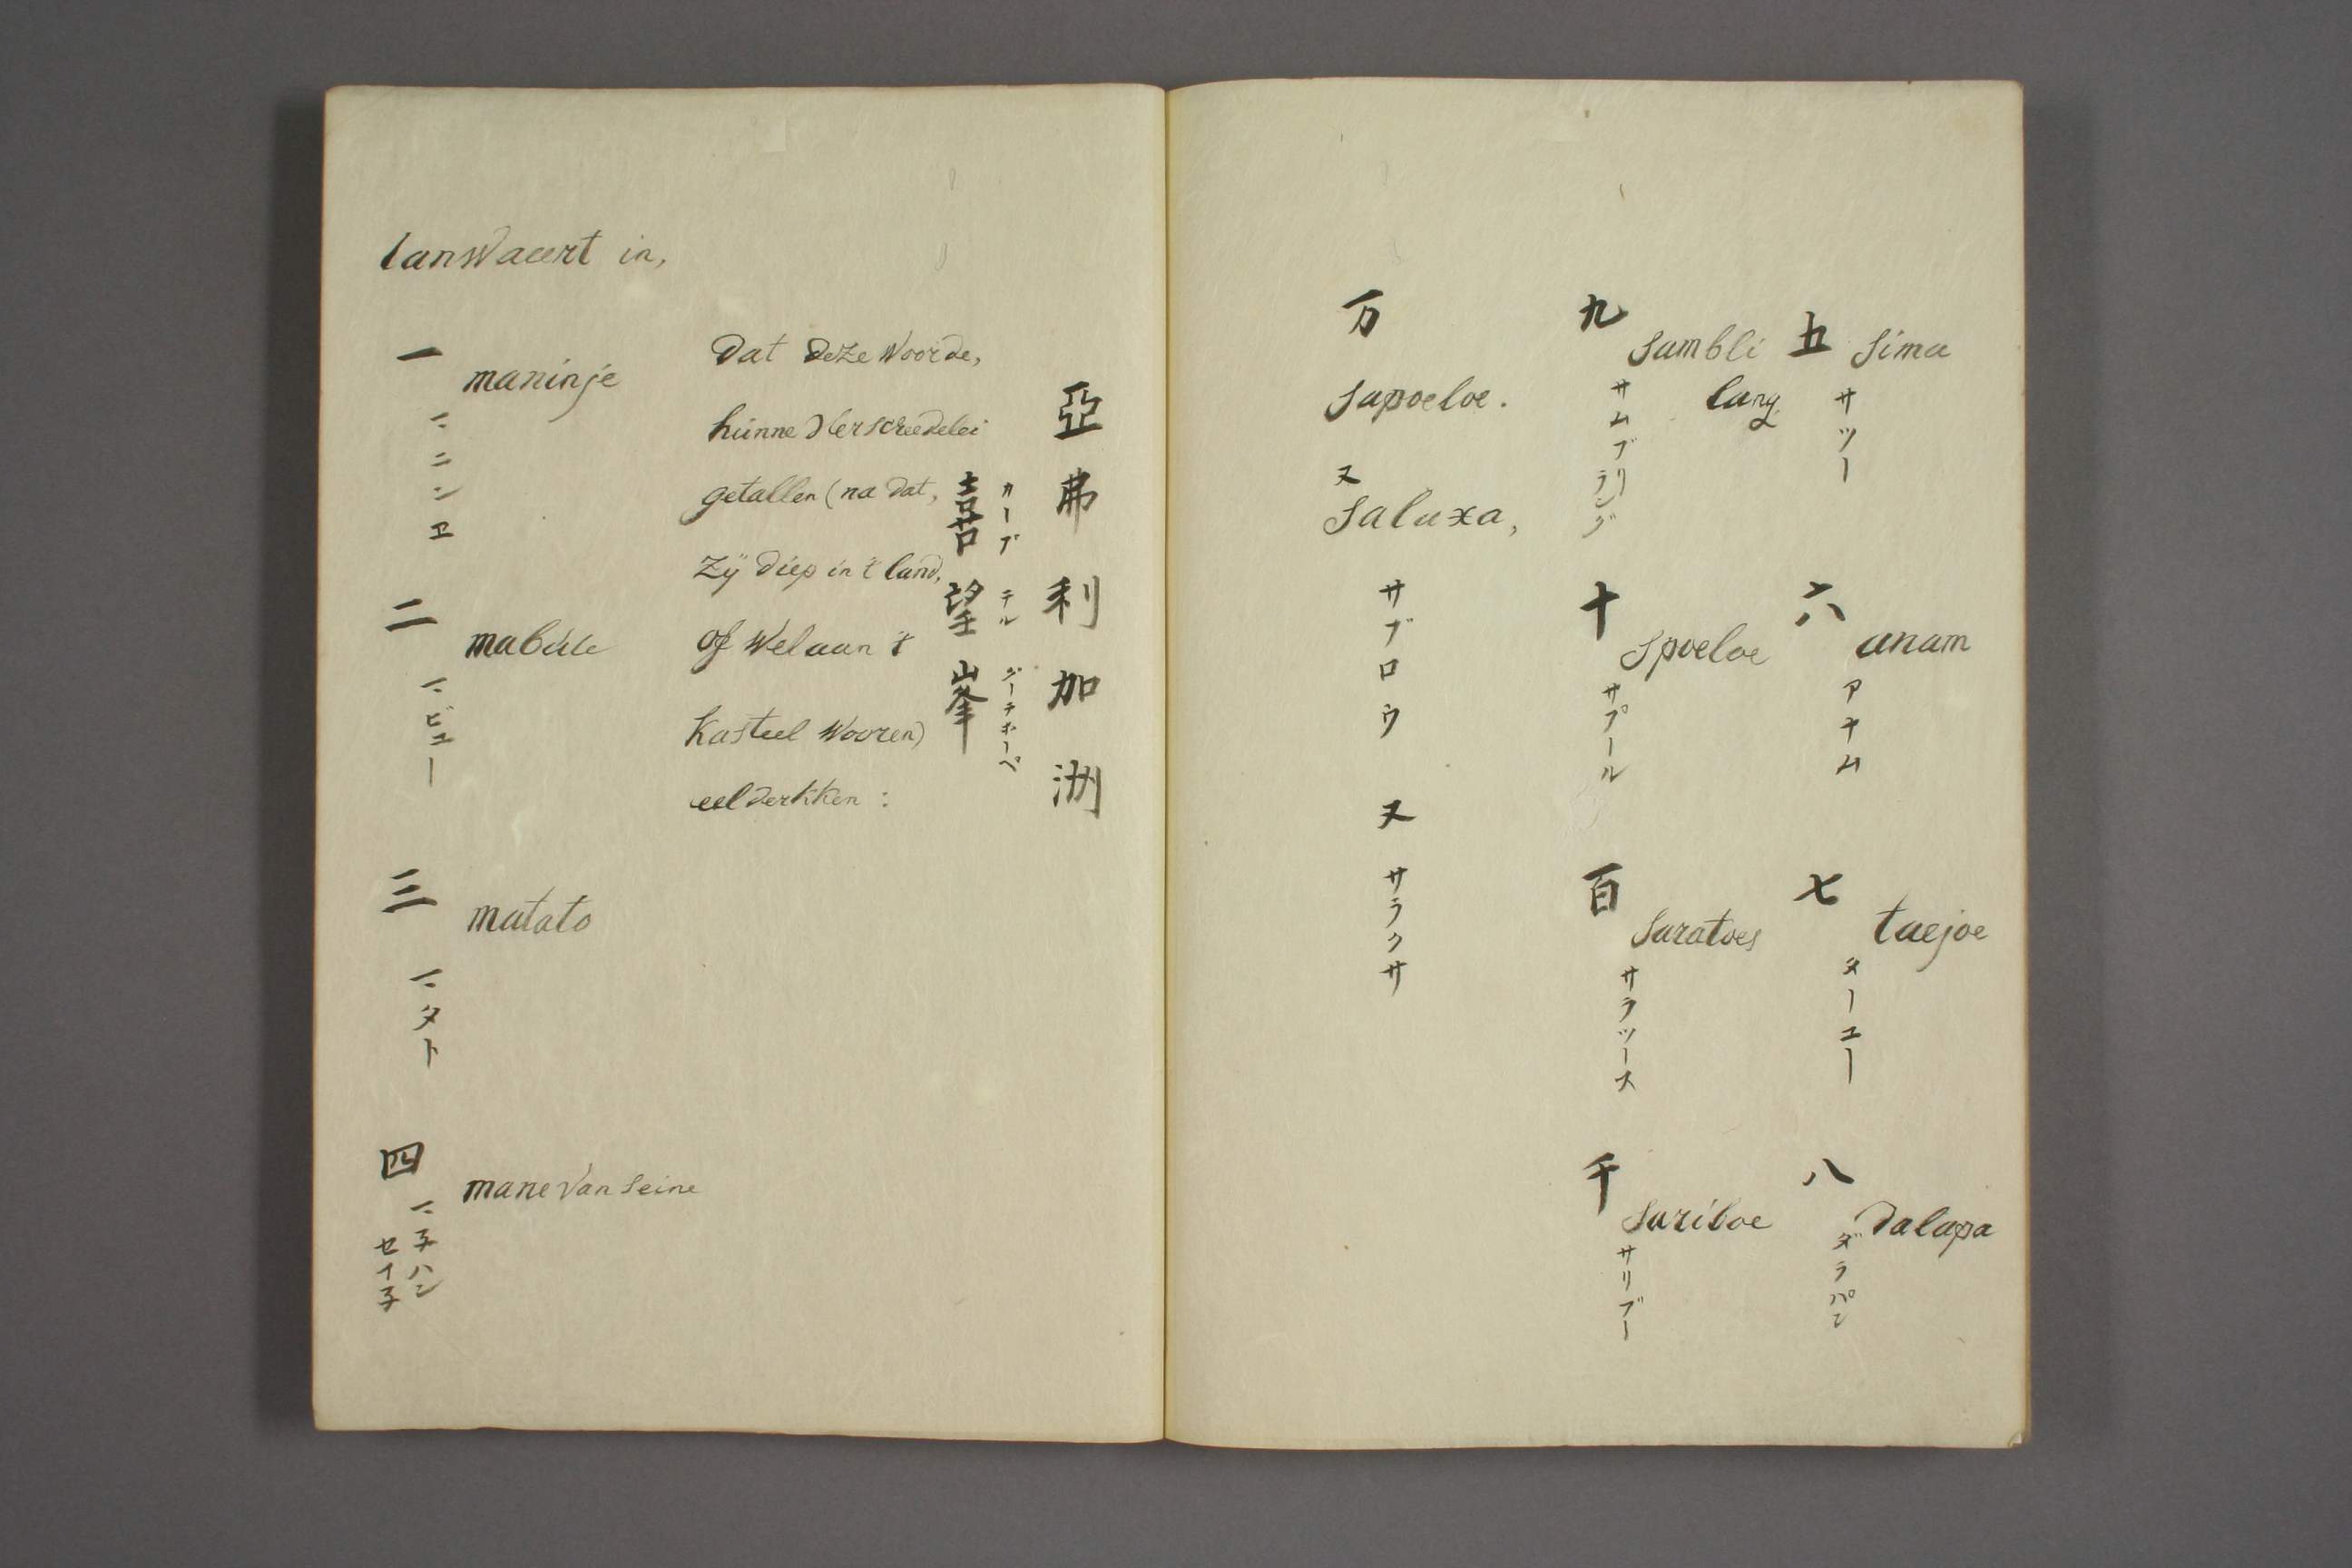 五
sima
サツー
六
anam
アナム
七
taejoe
ターユー
八
dalapa
ダラパン
九
sambli
lang
サムブリ
ラング
十
spoeloe
サプール
百
saratoes
サラツース
千
sariboe
サリブー
万
sapoeloe.
又
saluxa,
サブロウ 又 サラクサ
亞弗利加洲
カープ デル グーテホーペ
喜望峯
dat deze woorde,
getallen (na dat,
zÿ diep in 't land,
of wel aan 't
kasteel wooren)
lanswaert in,
一
maninje
マニンヱ
二
マビユー
三
matato
マタト
四
mane van seine
マネハン
セイネ